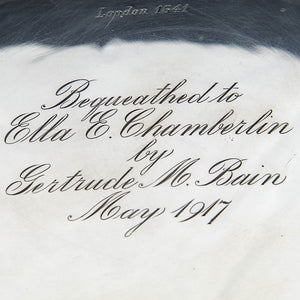 London 1841
Bequeathed to
Ella E. Chamberlin
by
Gertrude M. Bain
May 1917